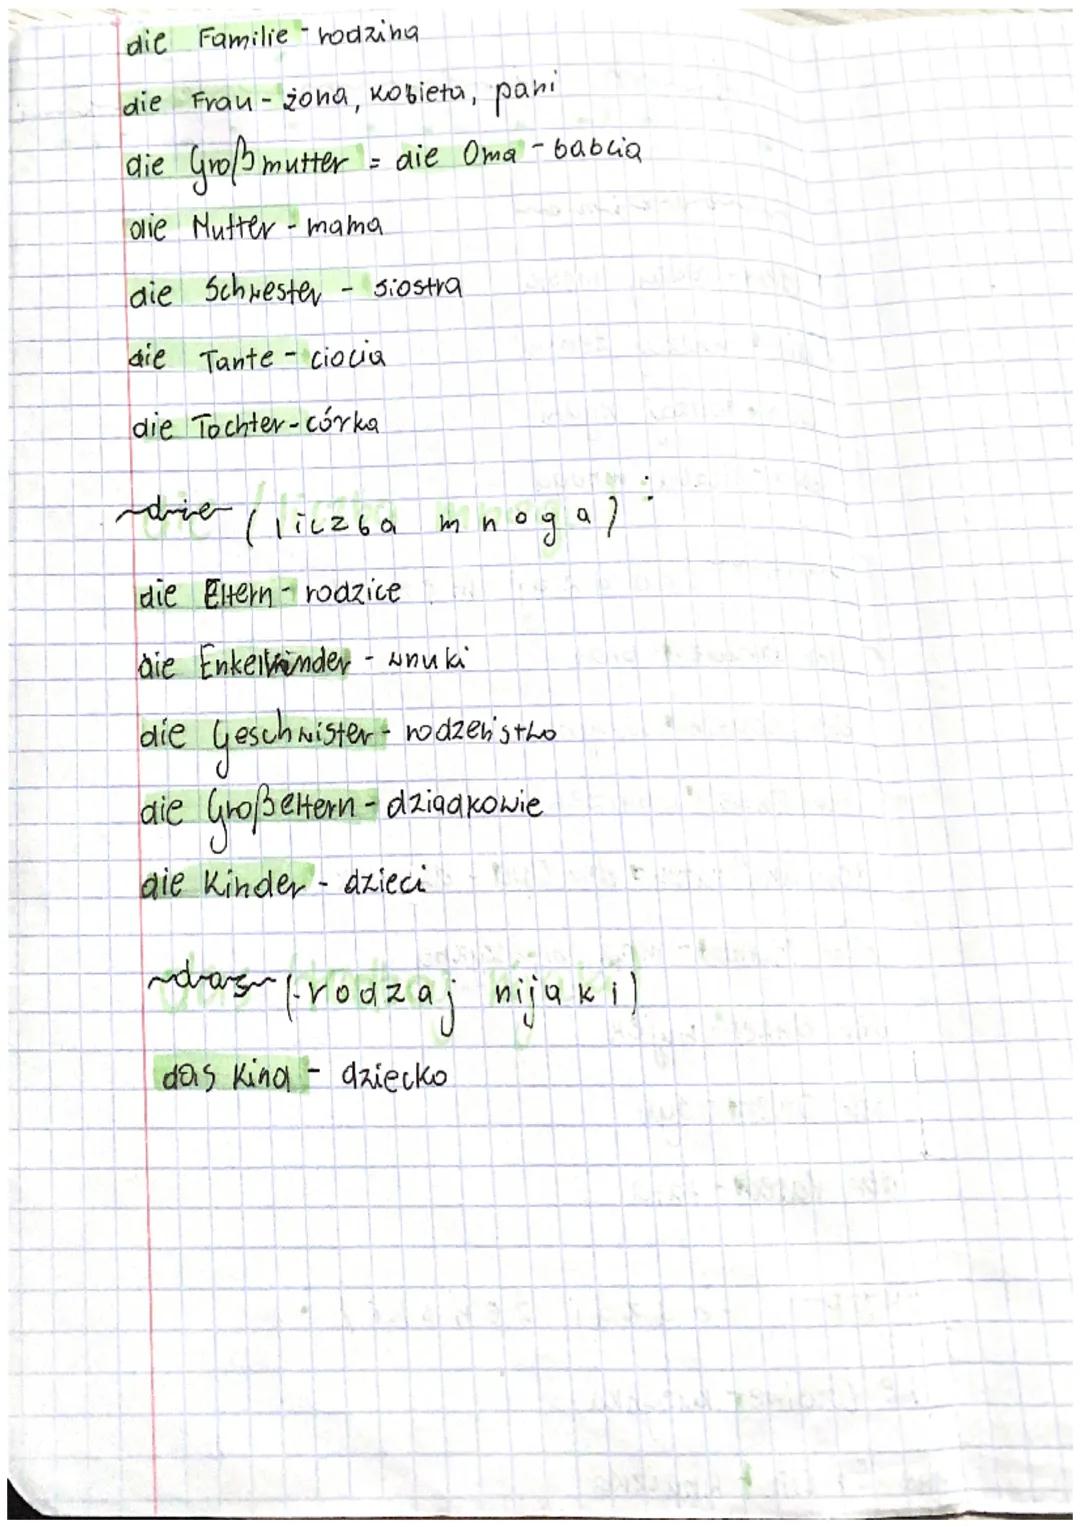 die Familie - rodzina
die Frau - żona, kobieta, pani
die Großmutter = die Oma - babcia
die Mutter - mama
die Schwester - siostra
die Tante - ciocia
die Tochter - córka
die (liczba mnoga):
die Eltern - rodzice
die Enkelkinder - wnuki
die Geschwister - rodzeństwo
die Großeltern - dziadkowie
die Kinder - dzieci
das (rodzaj nijaki)
das Kind - dziecko